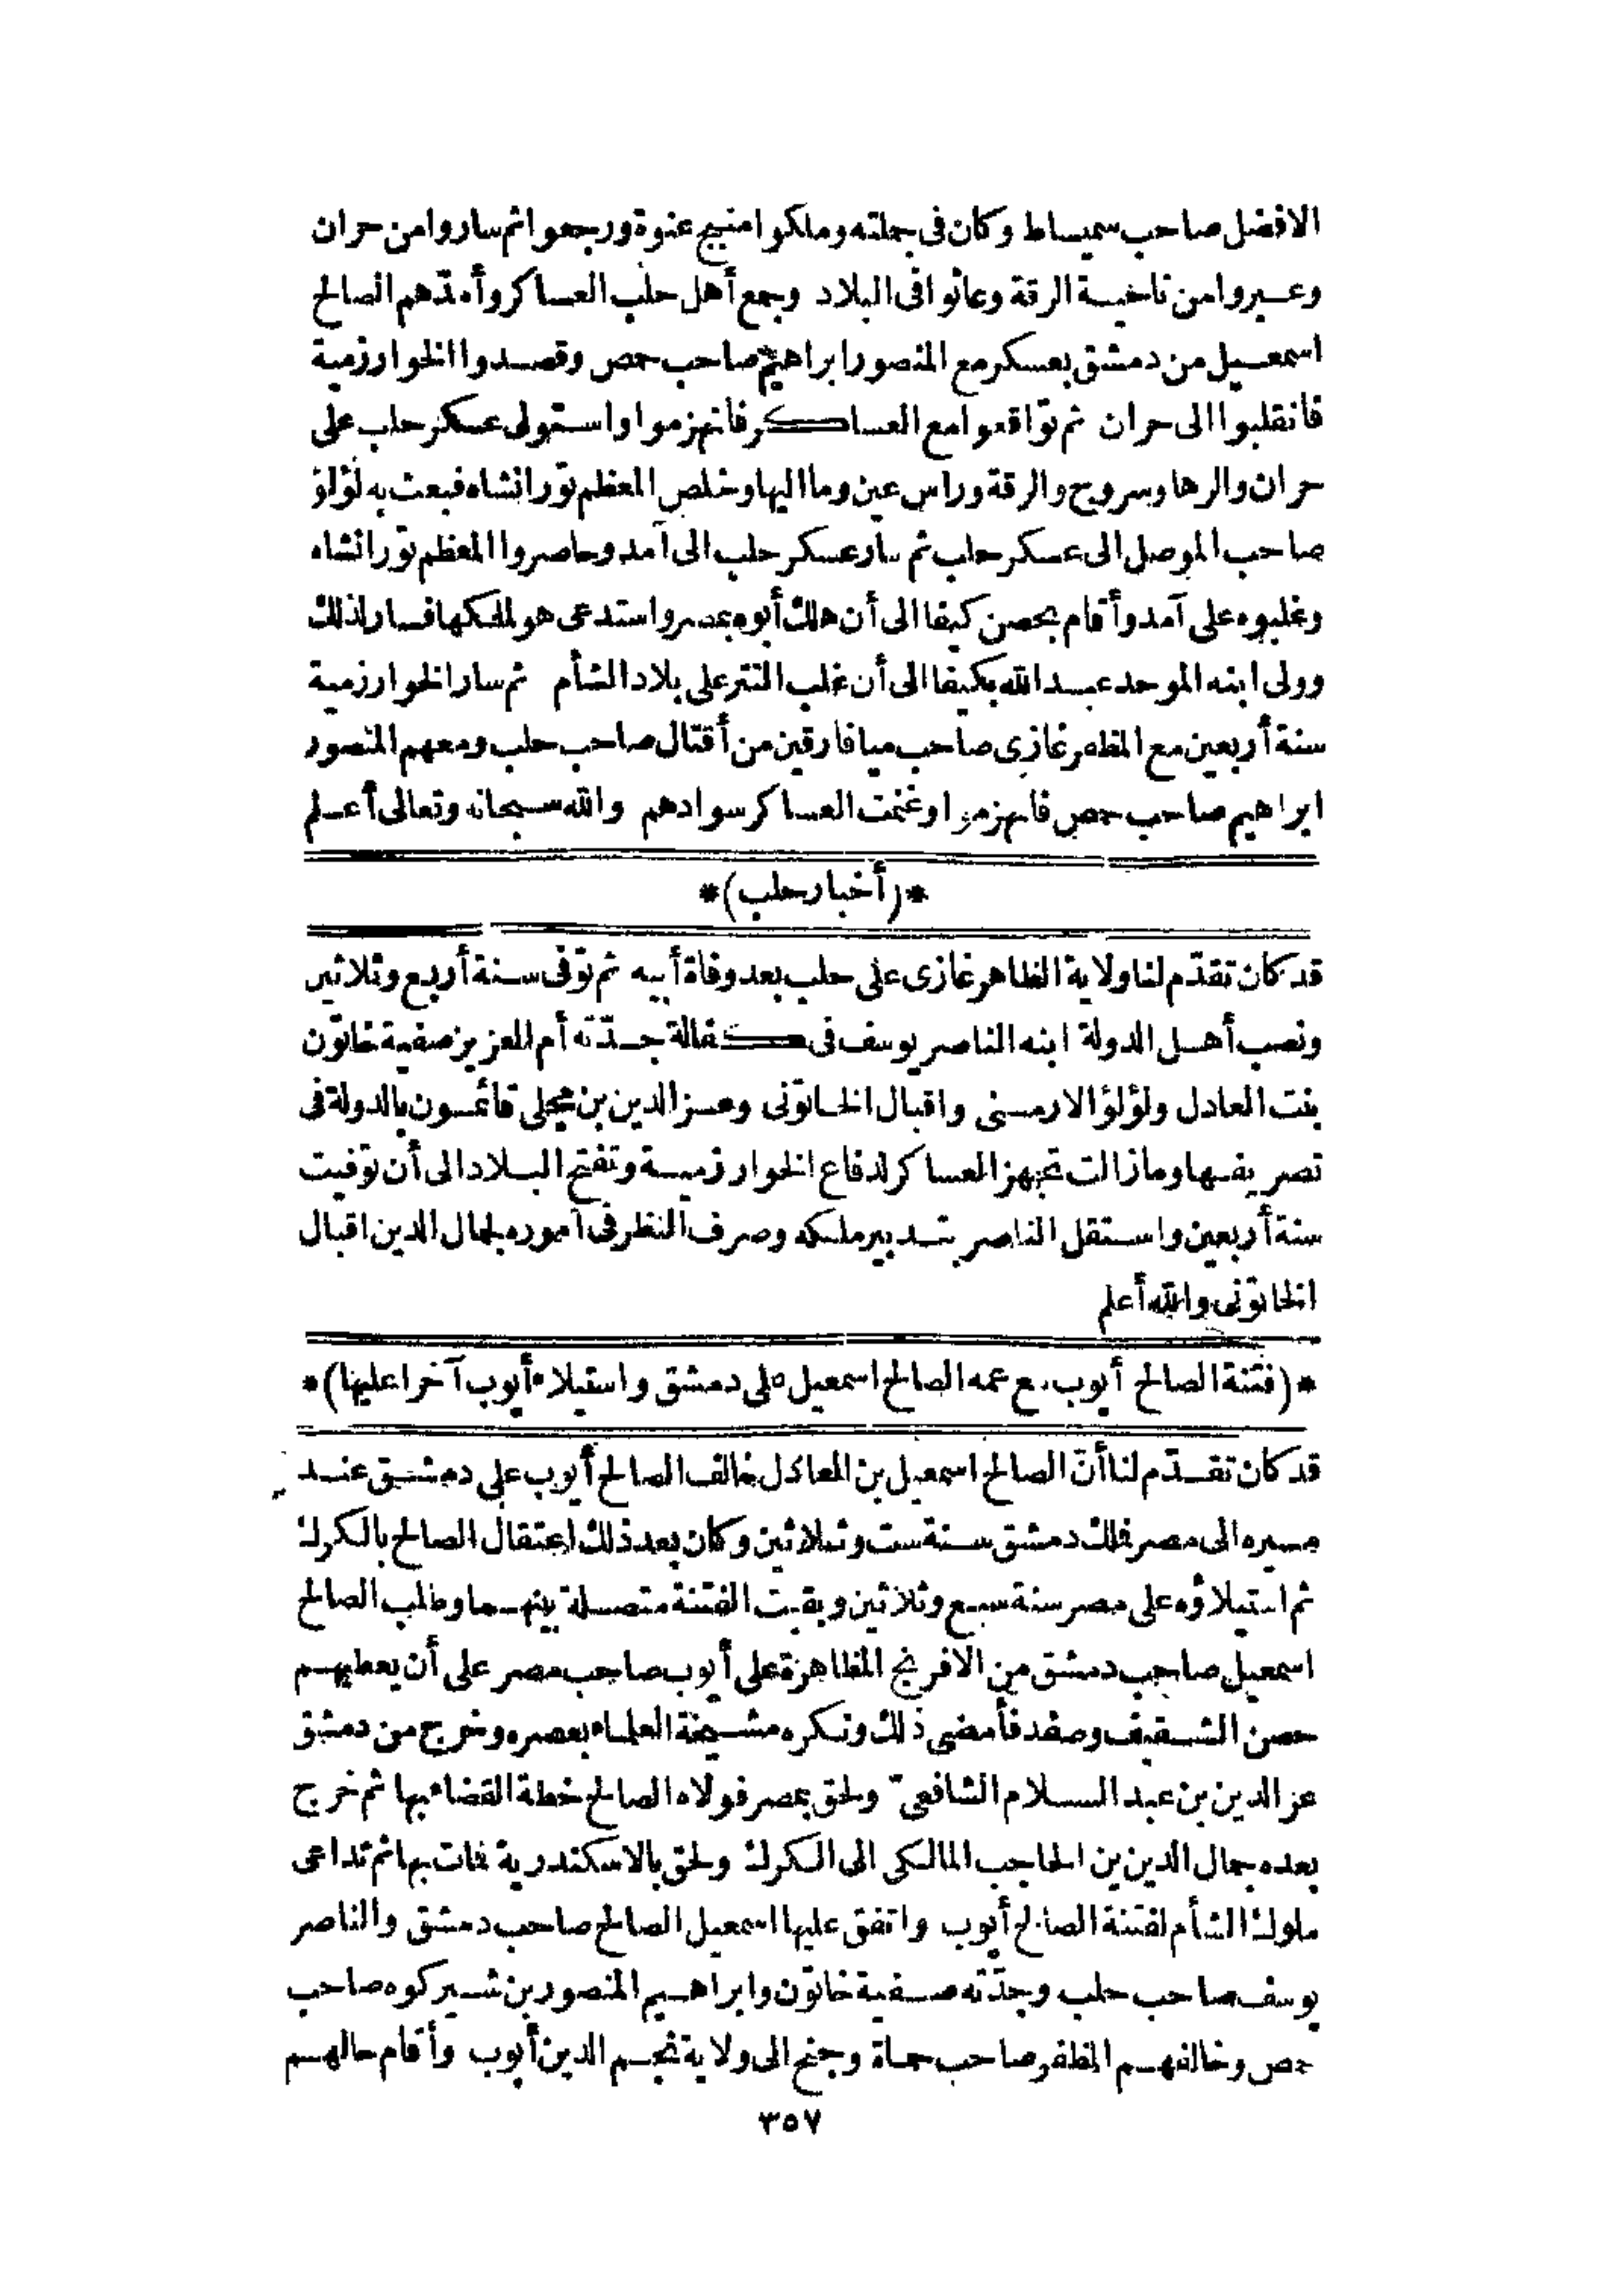 الافضل صاحب سميساط وكان فى جملته وملكوا منبج عنوة ورجعوا ثم ساروا من حران
وعبروا من ناحية الرقة وعاثوا فى البلاد وجمع أهل حلب العساكر وأمدّهم الصالح
اسمعيل من دمشق بعسكر مع المنصور ابراهيم صاحب حمص وقصدوا الخوارزمية
فانقلبوا الى حران ثم تواقعوا مع العساكر فانهزموا واستولى عسكر حلب على
حران والرها وسروج والرقة وراس عين وما اليها وخلص المعظم تورانشاه فبعث به لؤلؤ
صاحب الموصل الى عسكر حلب ثم سار عسكر حلب الى آمد وحاصروا المعظم تورانشاه
وغلبوه على آمد وأقام بحصن كيفا الى أن هلك أبوه بمصر واستدعى هو لملكها فسار لذلك
وولى ابنه الموحد عبد الله بكيفا الى أن غلب التتر على بلاد الشأم ثم سار الخوارزمية
سنة أربعين مع المظفر غازى صاحب ميافارقين من أقتال صاحب حلب ومعهم المنصور
ابراهيم صاحب حمص فانهزموا وغنمت العساكر سوادهم والله سبحانه وتعالى أعلم
*(أخبار حلب)*
قد كان تقدّم لنا ولاية الظاهر غازى على حلب بعد وفاة أبيه ثم توفى سنة أربع وثلاثين
ونصب أهل الدولة ابنه الناصر يوسف فى كفالة جدّته أم العزيز صفية خاتون
بنت العادل ولؤلؤ الارمنى واقبال الخاتونى وعز الدين بن مجلى قائمون بالدولة فى
تصريفها وما زالت تجهز العساكر لدفاع الخوارزمية وتفتح البلاد الى أن توفيت
سنة أربعين واستقل الناصر بتدبير ملكه وصرف النظر فى أموره لجمال الدين اقبال
الخاتونى والله أعلم
*(فتنة الصالح أيوب مع عمه الصالح اسمعيل على دمشق واستيلاء أيوب آخرا عليها)*
قد كان تقدّم لنا أنّ الصالح اسمعيل بن العادل خالف الصالح أيوب على دمشق عند
مسيره الى مصر فملك دمشق سنة ست وثلاثين وكان بعد ذلك اعتقال الصالح بالكرك
ثم استيلاؤه على مصر سنة سبع وثلاثين وبقيت الفتنة متصلة بينهما وطلب الصالح
اسمعيل صاحب دمشق من الافرنج المظاهرة على أيوب صاحب مصر على أن يعطيهم
حصن الشقيف وصفد فأمضى ذلك ونكره مشيخة العلماء بعصره وخرج من دمشق
عز الدين بن عبد السلام الشافعىّ ولحق بمصر فولاه الصالح خطة القضاء بها ثم خرج
بعده جمال الدين بن الحاجب المالكى الى الكرك ولحق بالاسكندرية فمات بها ثم تداعى
ملوك الشأم لفتنة الصالح أيوب واتفق عليها اسمعيل الصالح صاحب دمشق والناصر
يوسف صاحب حلب وجدّته صفية خاتون وابراهيم المنصور بن شيركوه صاحب
حمص وخالفهم المظفر صاحب حماة وجنح الى ولاية نجم الدين أيوب وأقام حالهم
٣٥٧